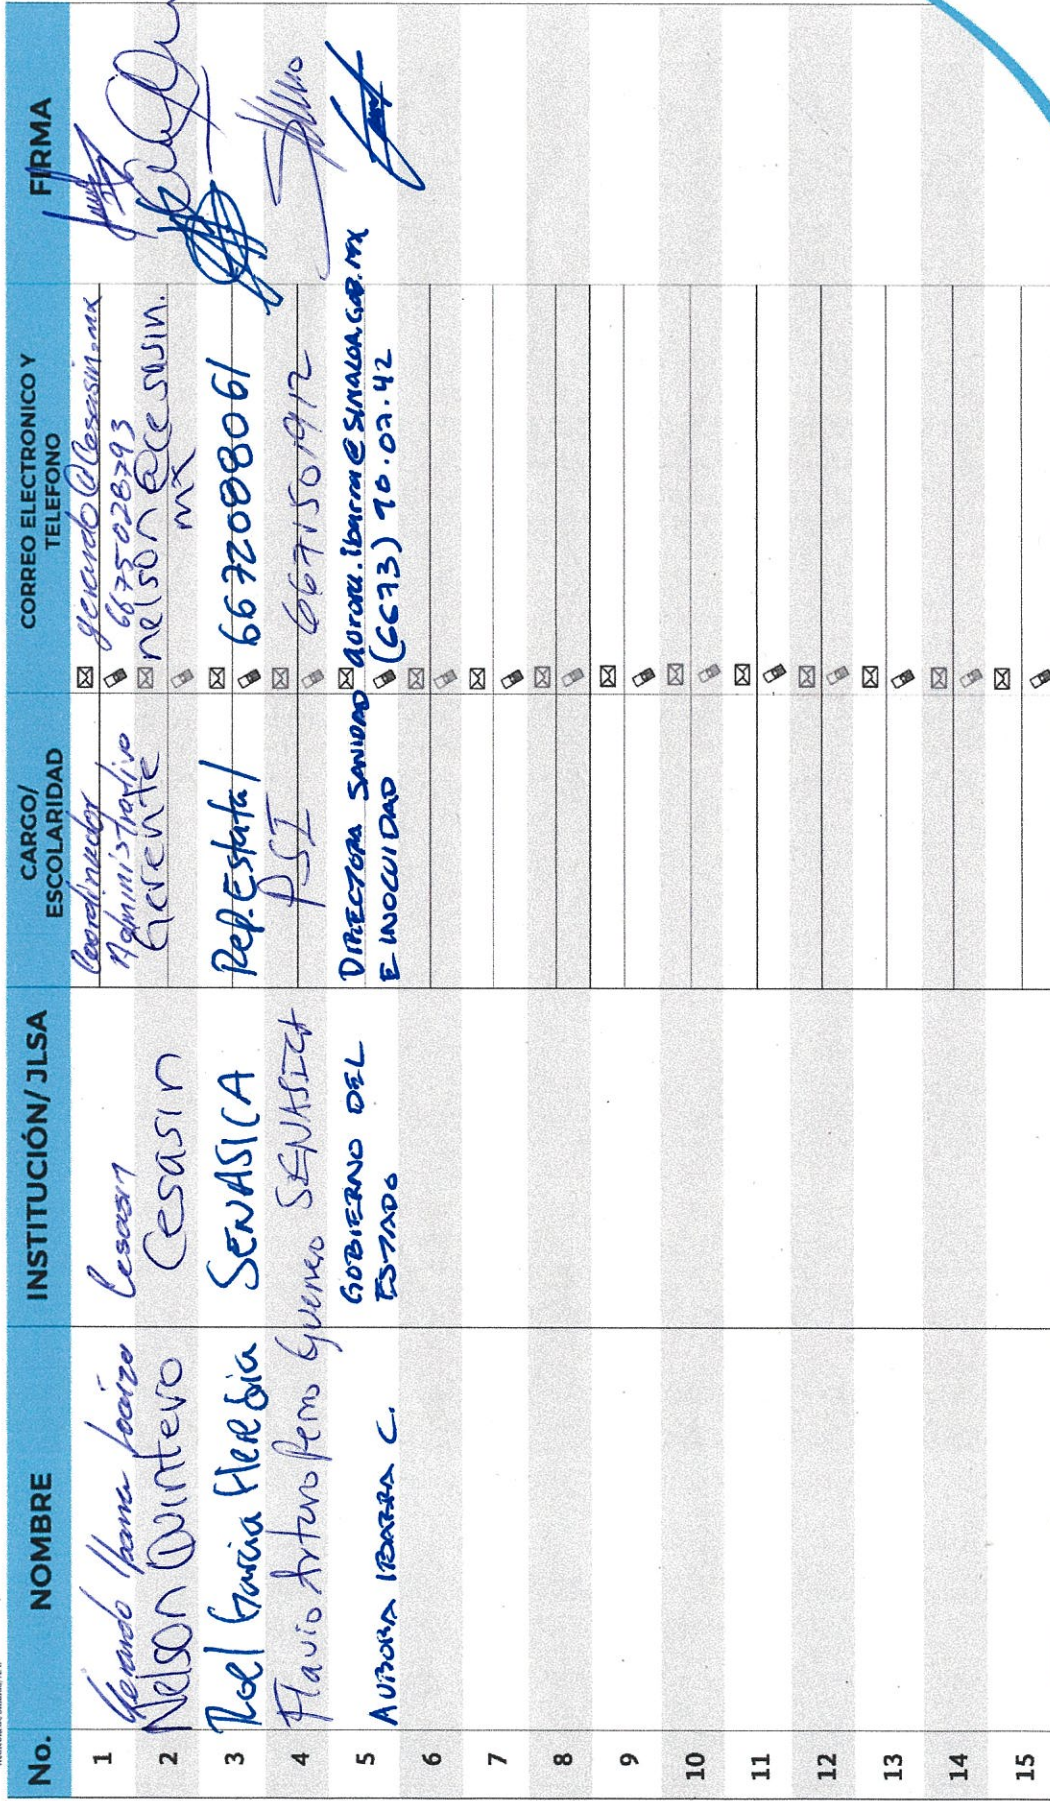 No. NOMBRE INSTITUCIÓN/JLSA CARGO/ ESCOLARIDAD CORREO ELECTRONICO Y TELEFONO FIRMA
1 Gerardo Ibarra Loaiza Cesasin Coordinador Administrativo gerardo@cesasin.mx 6675028793
2 Nelson Quintero Cesasin Gerente nelson@cesasin.mx
3 Roel García Heredia SENASICA Rep. Estatal 6672088061
4 Flavio Arturo SENASICA PSI 6671501912
5 AURORA IBARRA C. GOBIERNO DEL ESTADO DIRECTORA SANIDAD E INOCUIDAD aurora.ibarra@SINALOA.GOB.MX
6
7
8
9
10
11
12
13
14
15